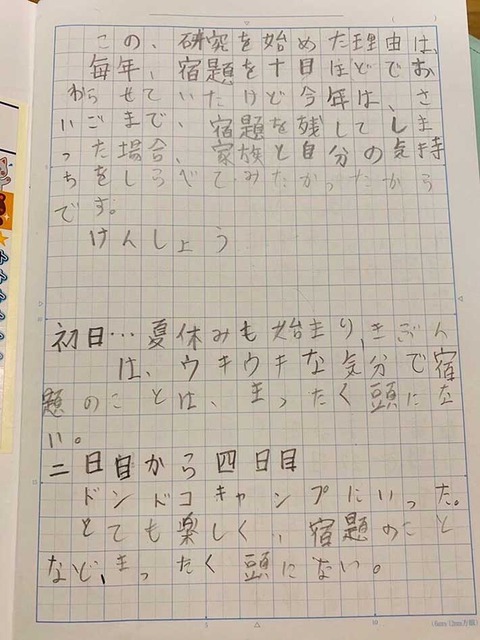 この、研究を始めた理由は、
毎年、宿題を十日ほどで、お
わらせていたけど今年は、さ
いごまで、宿題を残してしま
った場合、家族と自分の気持
ちをしらべてみたかったから
です。
けんしょう
初日…夏休みも始まり、きぶん
は、ウキウキな気分で宿
題のことは、まったく頭にな
い。
二日目から四日目
ドンドコキャンプにいった。
とても楽しく、宿題のこと
など、まったく頭にない。